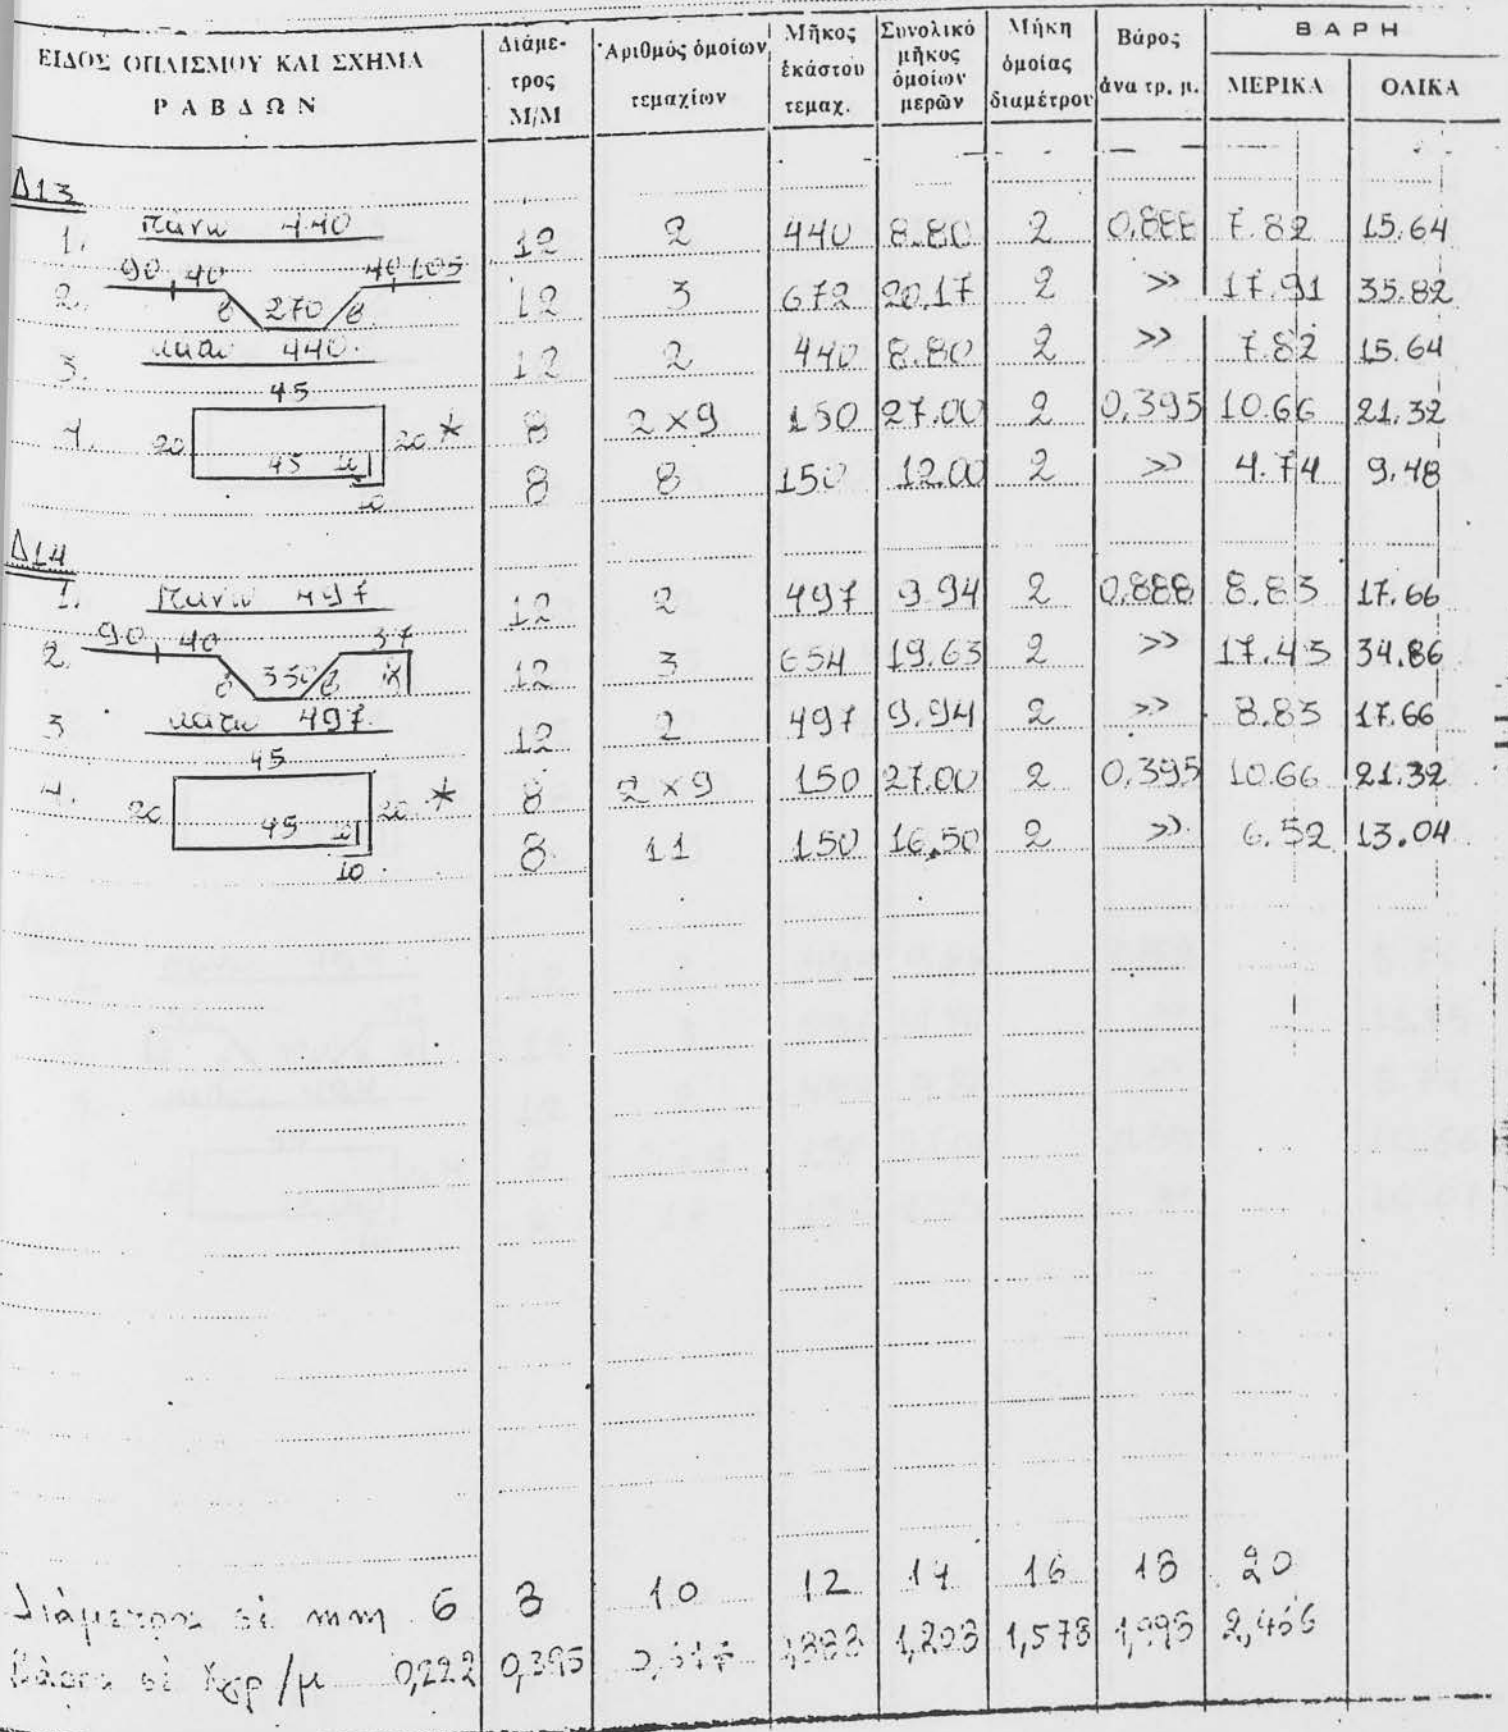 ΕΙΔΟΣ ΟΠΛΙΣΜΟΥ ΚΑΙ ΣΧΗΜΑ
ΡΑΒΔΩΝ
Διάμε-
τρος
Μ/Μ
Ἀριθμός ὁμοίων
τεμαχίων
Μῆκος
ἑκάστου
τεμαχ.
Συνολικό
μῆκος
ὁμοίων
μερῶν
Μήκη
ὁμοίας
διαμέτρου
Βάρος
ἀνα τρ. μ.
ΒΑΡΗ
ΜΕΡΙΚΑ
ΟΛΙΚΑ
Δ13
1. πάνω 440 12 2 440 8.80 2 0,888 7.82 15.64
90 40 40 105
2. 8 270 8 12 3 672 20.17 2 >> 17.91 35.82
3. κάτω 440. 12 2 440 8.80 2 >> 7.82 15.64
45
4. 20 20 * 8 2×9 150 27.00 2 0,395 10.66 21.32
45 10 8 8 150 12.00 2 >> 4.74 9.48
10
Δ14
1. πάνω 497 12 2 497 9.94 2 0,888 8.83 17.66
90 40 37
2. 8 330 8 12 3 654 19.63 2 >> 17.43 34.86
3 κάτω 497. 12 2 497 9.94 2 >> 8.83 17.66
45
4. 20 20 * 8 2×9 150 27.00 2 0,395 10.66 21.32
45 10 8 11 150 16.50 2 >> 6.52 13.04
10
Διάμετρος σέ mm 6 8 10 12 14 16 18 20
Βάρος σέ Kgr/μ 0,222 0,395 0,617 0,888 1,208 1,578 1,998 2,466